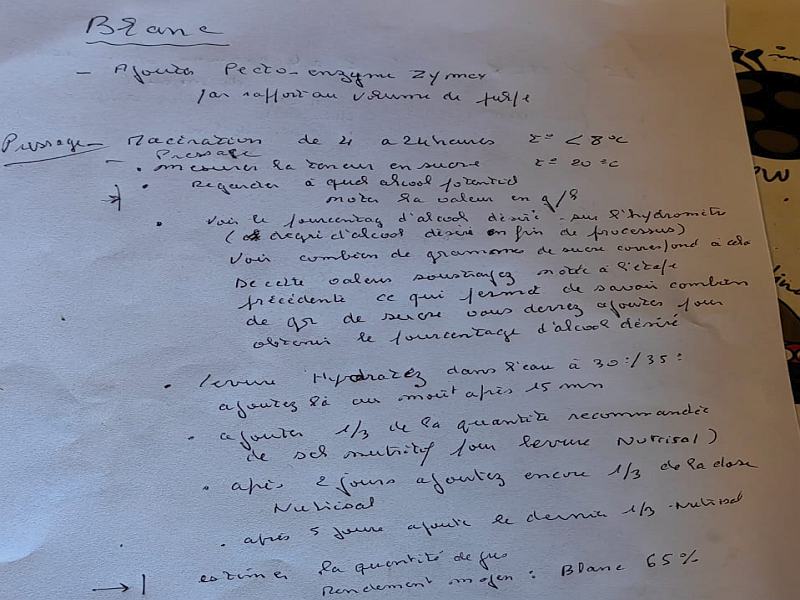 Blanc
- Ajouter Pecto-enzyme Zymex
par rapport au volume de pulpe
Pressage - Macération de 4 a 24 heures t° < 8°C
Pressage
- • mesurer la teneur en sucre t° 20°C
• Regarder à quel alcool potentiel
noter la valeur en g/l
• voir le pourcentag d'alcool désiré sur l'hydromètre
( degré d'alcool désiré en fin de processus)
Voir combien de gramme de sucre correspond à cela
De cette valeur soustrayez notée à l'étape
précédente ce qui permet de savoir combien
de gr de sucre vous devrez ajouter pour
obtenir le pourcentage d'alcool désiré
• levure Hydratez dans l'eau à 30°/35°
ajoutez là au moût après 15 mn
• ajouter 1/3 de la quantité recommandée
de sel nutritif pour levure Nutrisal)
• après 2 jours ajoutez encore 1/3 de la dose
Nutrisal
• après 5 jours ajoute le dernier 1/3 Nutrisal
→ estimer la quantité de jus
Rendement moyen : Blanc 65%